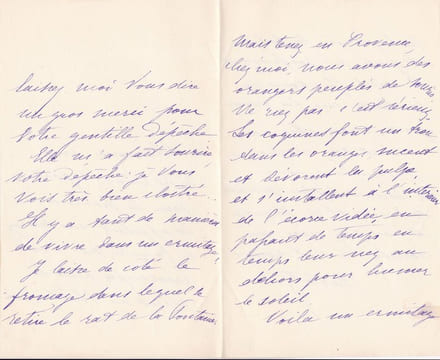 Laissez moi vous dire
un gros merci pour
votre gentille dépêche
Elle m'a fait sourire
votre dépêche: je vous
vois très bien cloîtré..
Il y a tant de manières
de vivre dans un ermitage!
Je laisse de coté le
fromage dans lequel se
retire le rat de la Fontaine
Mais tenez en Provence,
chez moi, nous avons des
orangers peuplés de souris
Ne riez pas! c'est sérieux
Les coquines font un trou
dans les oranges sucent
et dévorent la pulpe,
et s'installent à l'intérieur
de l'écorce vidée, en
passant de temps en
temps leur nez au
dehors pour humer
le soleil.
Voila un ermitage